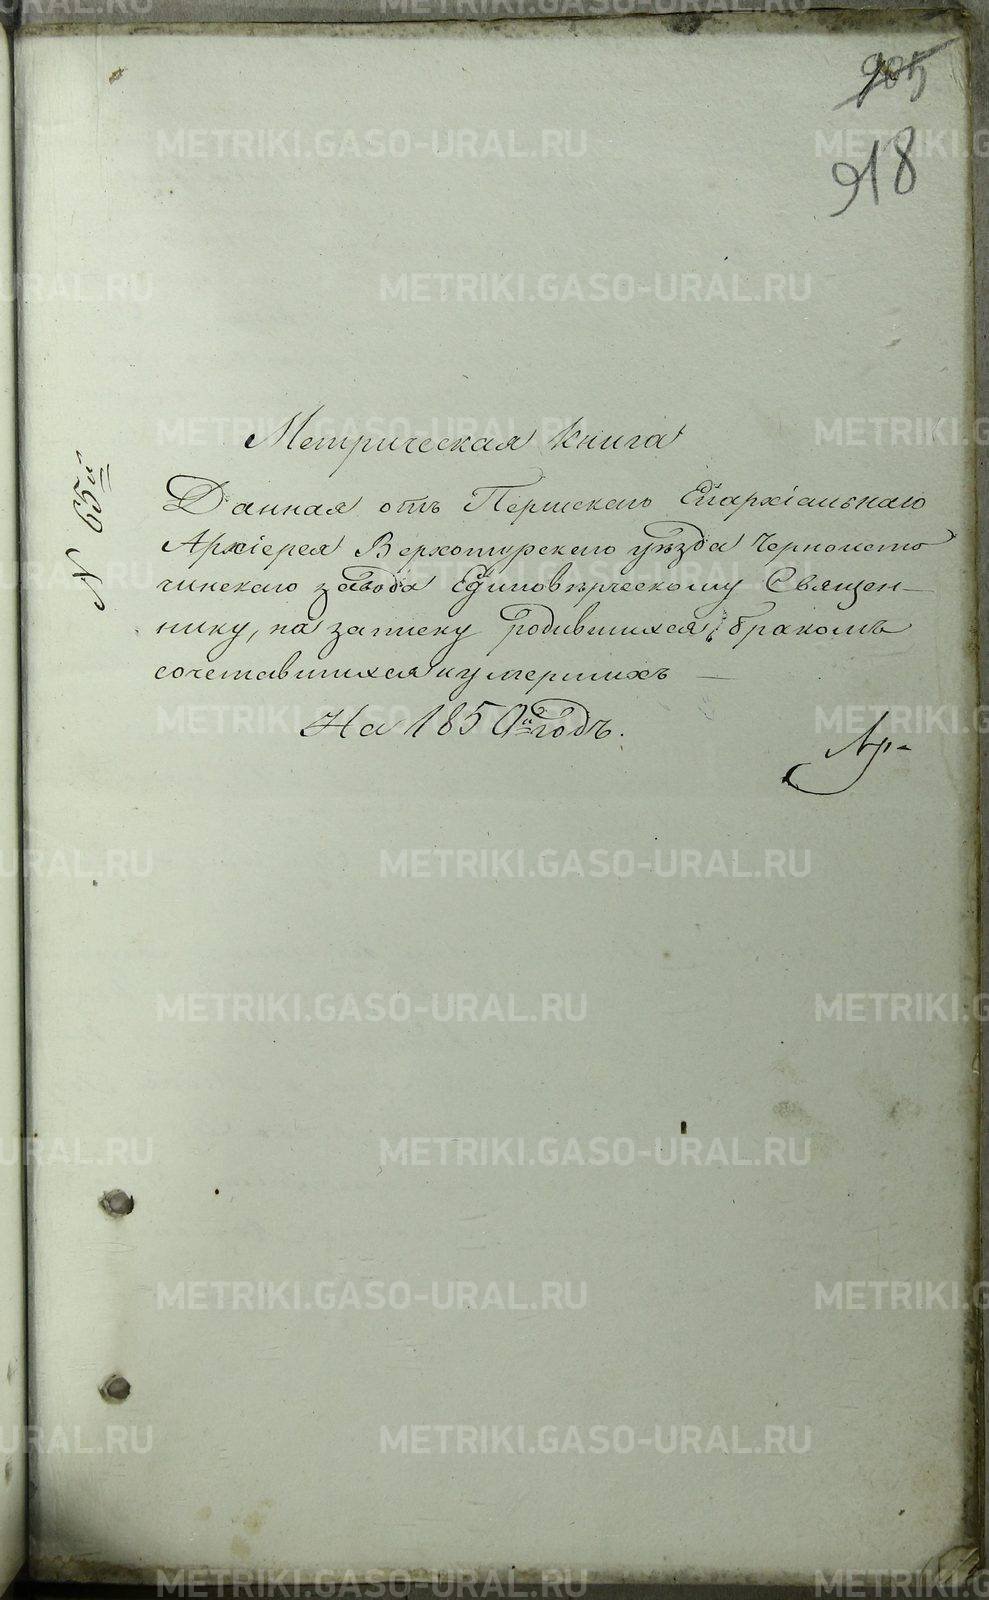 905
918
N 65й
Метрическая Книга
Данная отъ Пермскаго Епархіальнаго
Архіерея Верхотурскаго уѣзда Черноисто
чинскаго завода Единовѣрческому Священ-
нику, на записку родившихся, бракомъ
сочетавшихся и умершихъ —
На 1850й годъ.
METRIKI.GASO-URAL.RU